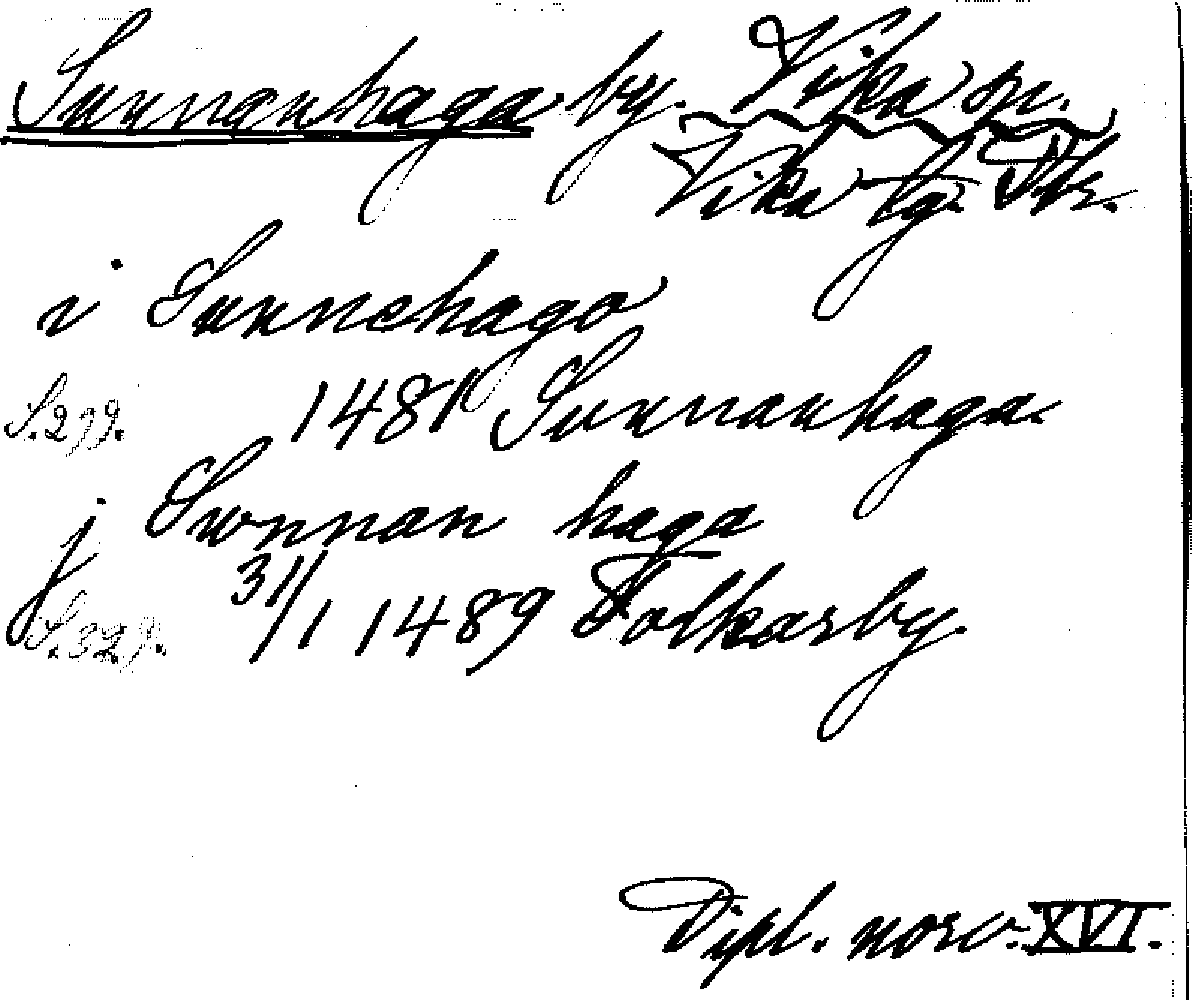 Sunnanhaga by. Vika sn.
Vika tg. Dlr.
i Sunnehago
S.299. 1481 Sunnanhaga.
j Swnnan haga
S.329. 31/1 1489 Folkarby.
Dipl. norv. XVI.